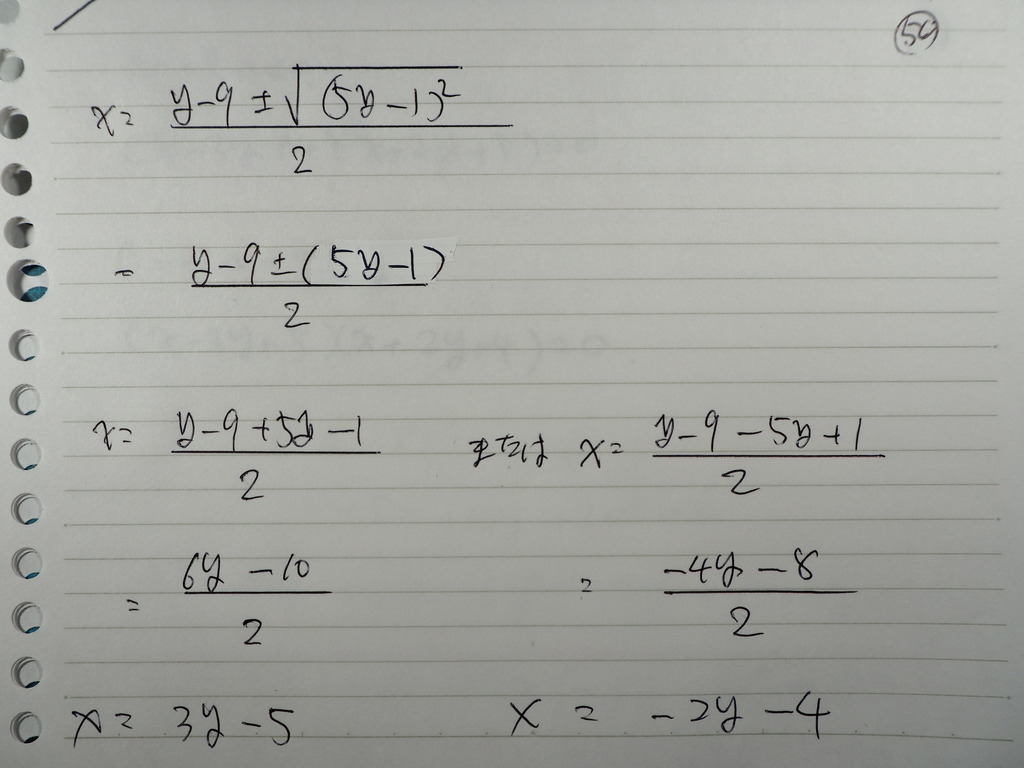 59
x = \frac{y-9 \pm \sqrt{(5y-1)^2}}{2}
= \frac{y-9 \pm (5y-1)}{2}
x = \frac{y-9+5y-1}{2} または x = \frac{y-9-5y+1}{2}
= \frac{6y-10}{2} = \frac{-4y-8}{2}
x = 3y-5 x = -2y-4